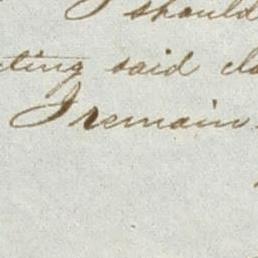 I should
cting said cla
I remain